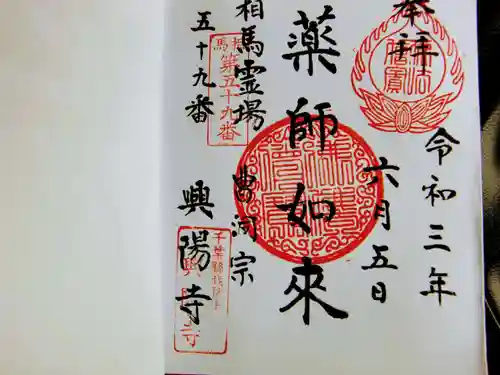 奉拝
令和三年
六月五日
薬師如来
曹洞宗
相馬霊場
五十九番
興陽寺
相馬
第五十九番
仏法僧寳
千葉縣我孫子
興陽寺